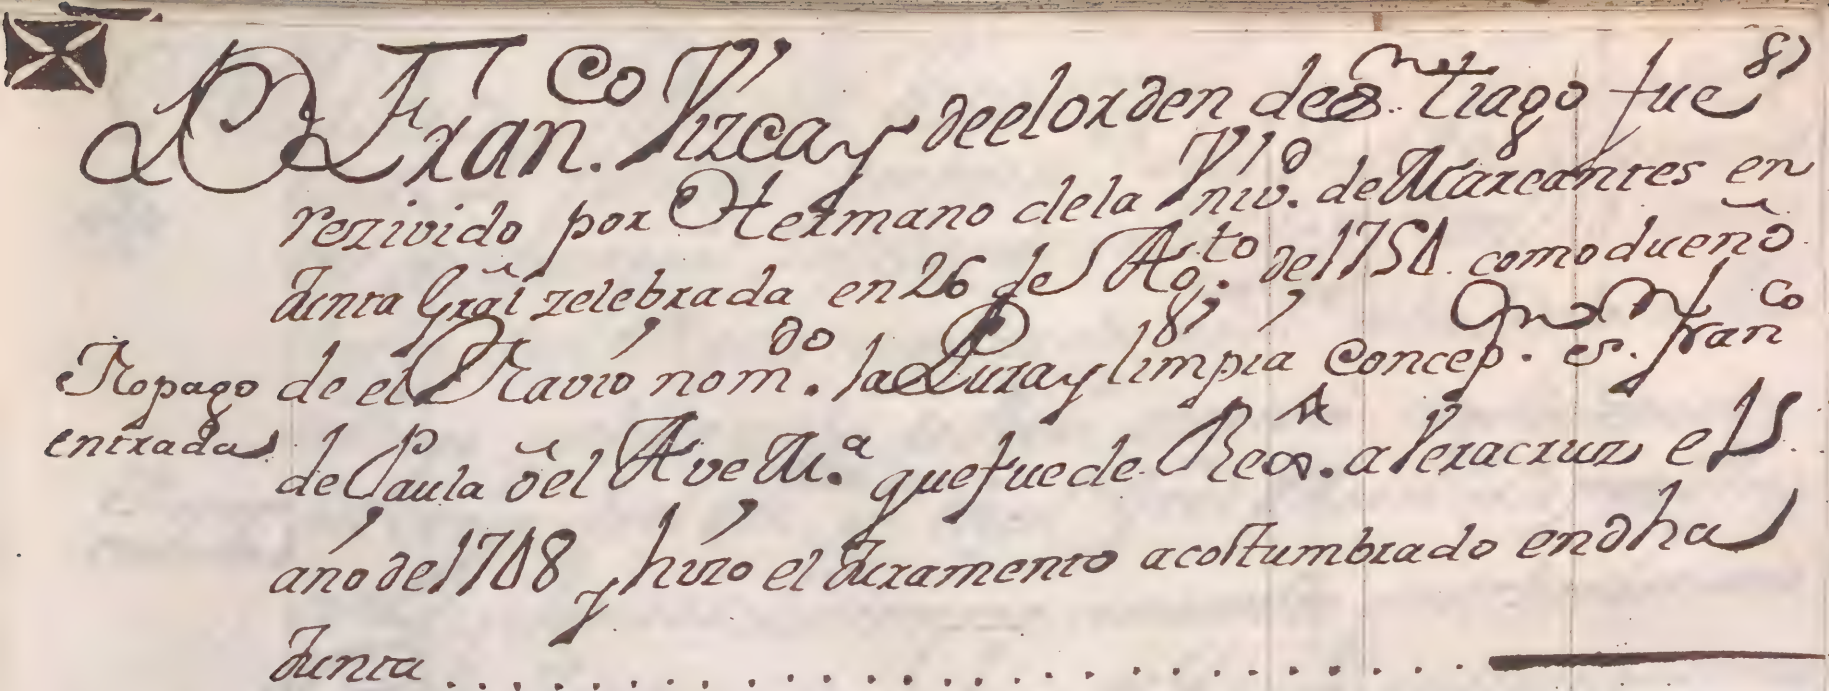 87
Dn Franco. Vizcay de el orden de Sn.tiago fue
rezivido por Hermano de la Vnivd. de Mareantes en
Junta Gral zelebrada en 26 de Agto. del 1751 como dueño
de el Navio nomdo. la Pura y limpia Concepn. Sn. Franco
No pago
entrada
de Paula del Ave Ma. que fue de Rexo. a Veracruz el
año del 1748 y hizo el Juramento acostumbrado en dha
Junta